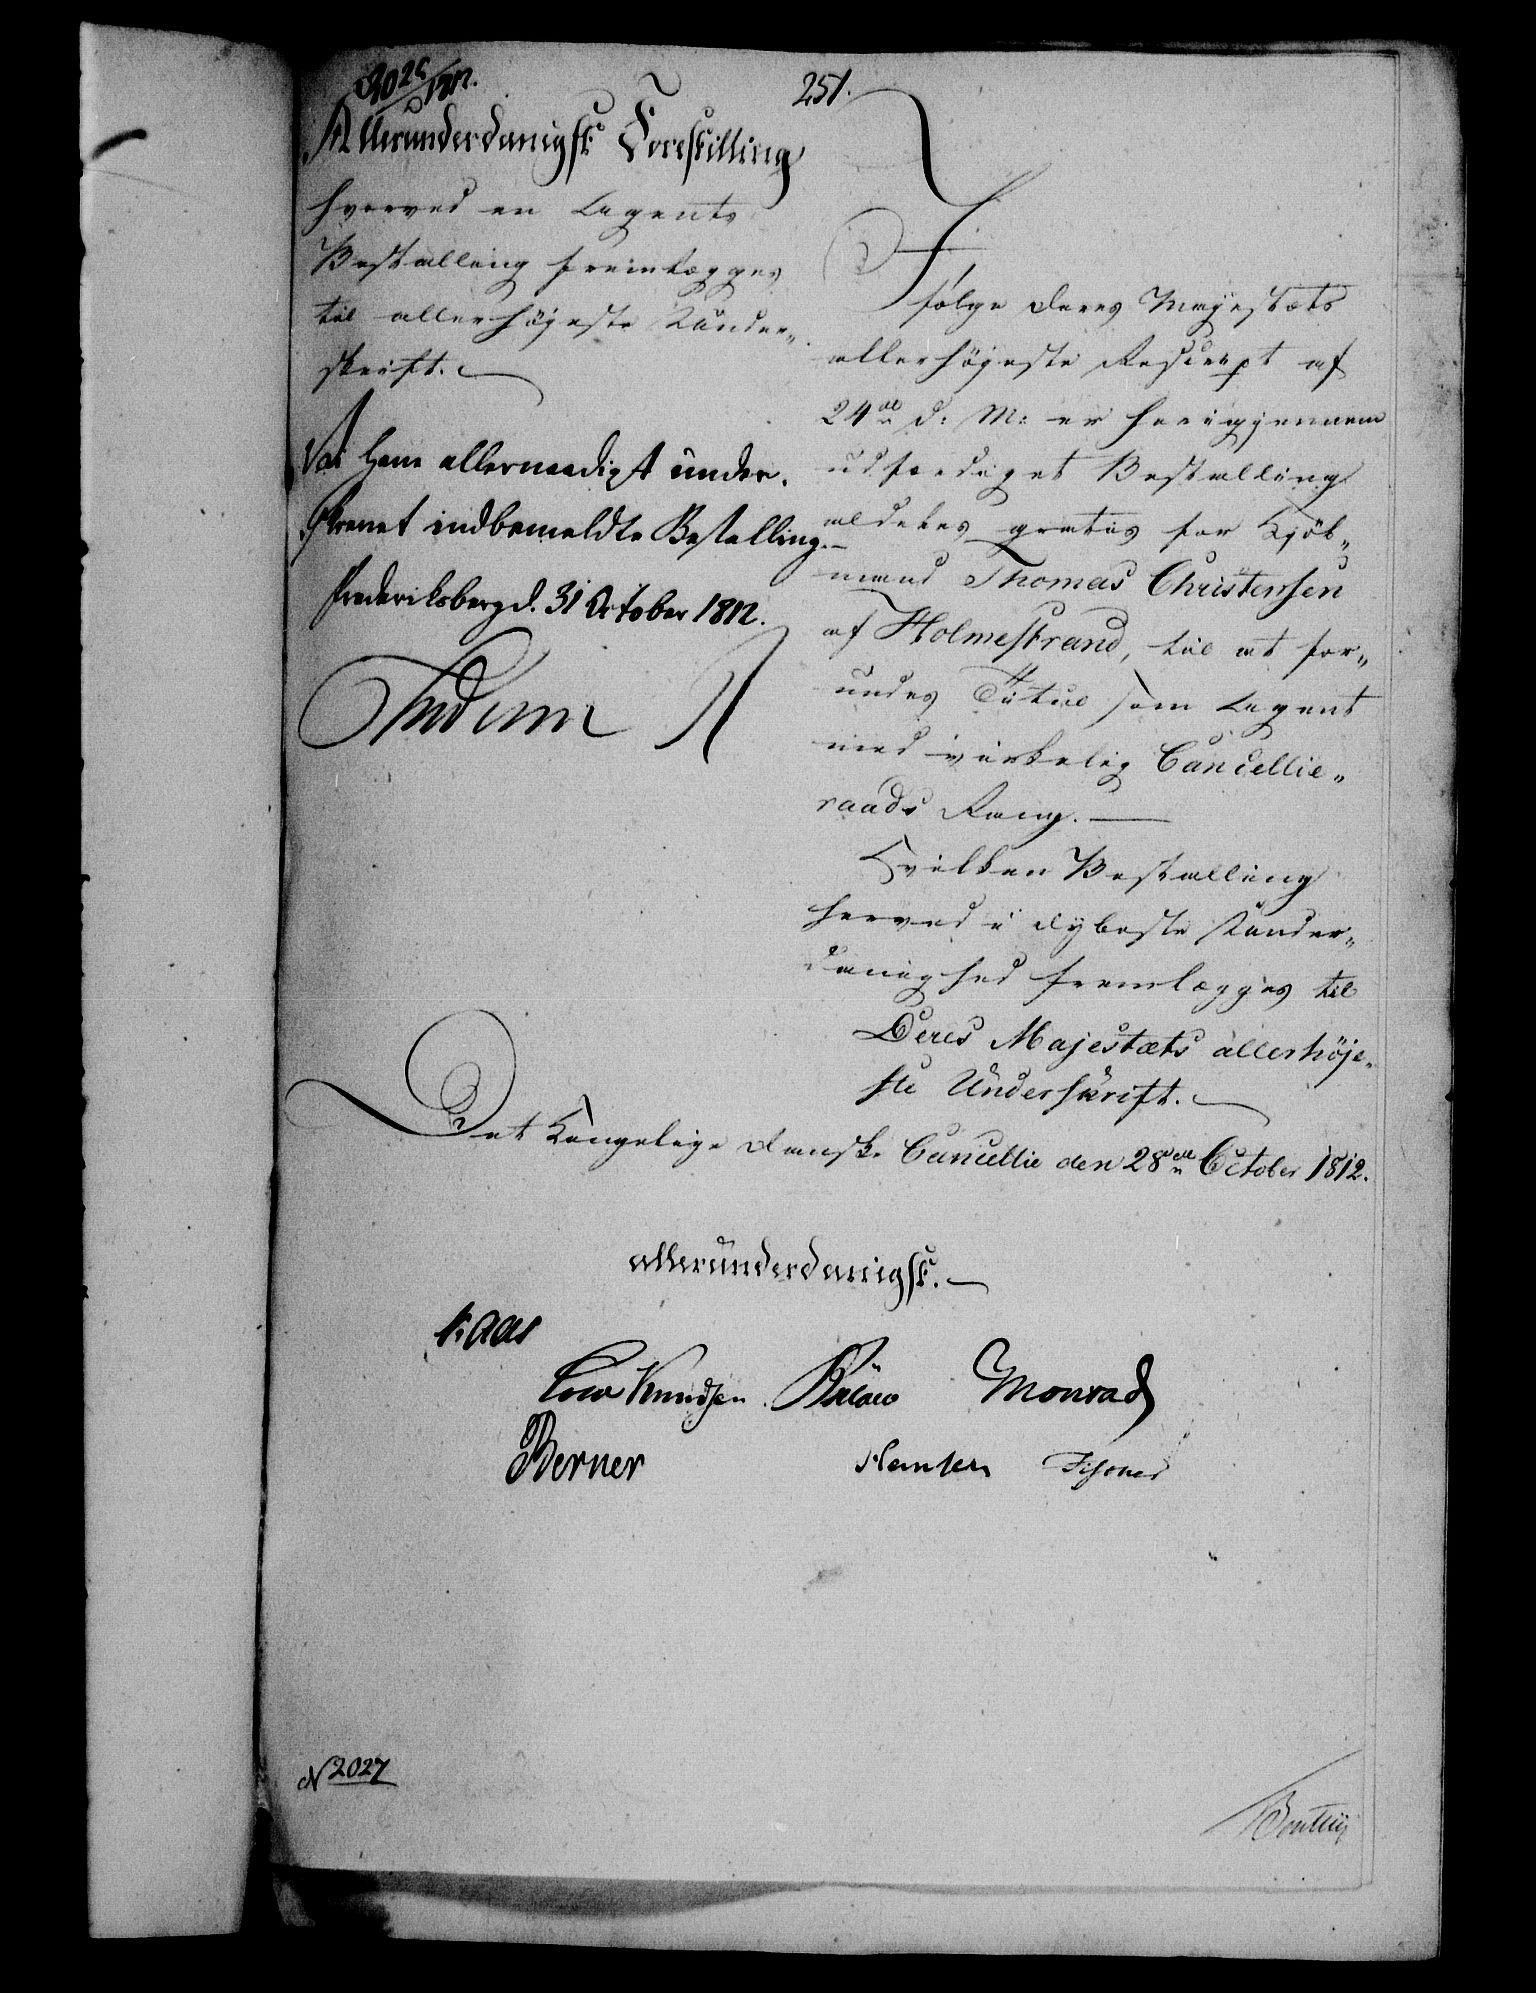 2025/1812.
251.
Allerunderdanigst Forestilling
hvorved en Agents
Bestalling fremlægges
til allerhöjeste Under„
skrift.
Vi have allernaadigst under„
skrevet indbemeldte Bestalling.
Frederiksberg d. 31 October 1812.
Frederik R
I
følge Deres Majestæts
allerhöjeste Rescript af
24de d: M: er herigjennem
udfærdiget Bestalling
aldeles gratis for Kjöb„
mand Thomas Christensen
af Holmestrand, til at for„
undes Titul som Agent
med virkelig Cancellie„
raads Rang.
Hvilken Bestalling
herved i dybeste Under„
danighed fremlægges til
Deres Majestæts allerhöje„
ste Underskrift.
Det Kongelige danske Cancellie den 28de October 1812.
allerunderdanigst.
Kaas
Cold Knudsen Bülow Monrad
Berner
N 2027